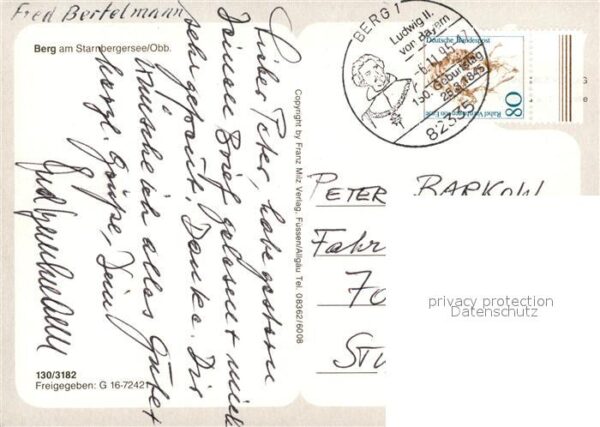 Fred Bertelmann
Berg am Starnbergersee/Obb.
Lieber Peter, habe gestern
Deinen Brief gelesen + mich
sehr gefreut. Danke. Dir
wünsche ich alles Gute +
herzl. Grüße, Dein
130/3182
Freigegeben: G 16-72421
Copyright by Franz Milz Verlag, Füssen/Allgäu Tel. 08362/6008
BERG 1
Ludwig II.
von Bayern
150. Geburtstag
25.8.1845
82335
Deutsche Bundespost
80
Rahel Varnhagen von Ense
PETER
Fahr
70
STU
privacy protection
Datenschutz